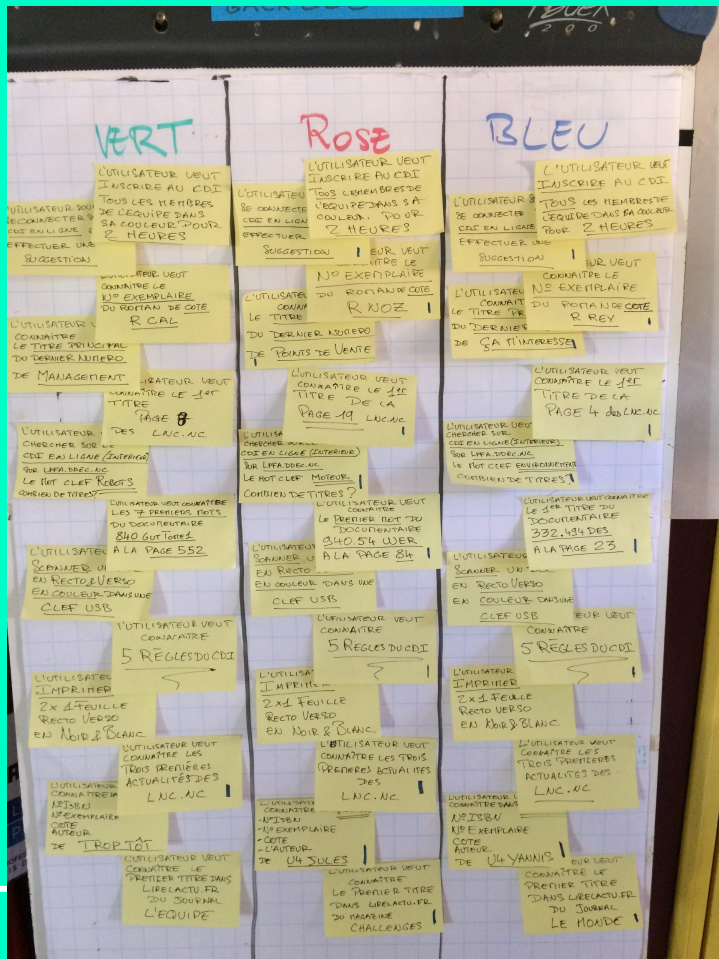 VERT
L'UTILISATEUR VEUT
INSCRIRE AU CDI
TOUS LES MEMBRES
DE L'EQUIPE DANS
SA COULEUR POUR
2 HEURES
CDI EN LIGNE
EFFECTUER UNE
SUGGESTION
VEUT
CONNAITRE LE
N° EXEMPLAIRE
DU ROMAN DE COTE
R CAL
L'UTILISATEUR
CONNAITRE
LE TITRE PRINCIPAL
DU DERNIER NUMERO
DE MANAGEMENT
VEUT
CONNAITRE LE 1er
TITRE
PAGE 8
DES LNC.NC
L'UTILISATEUR
CHERCHER SUR LE
CDI EN LIGNE (INTERIEUR)
SUR LPFA.DDEC.NC
LE MOT CLEF ROBOTS
COMBIEN DE TITRES?
L'UTILISATEUR VEUT CONNAITRE
LES 7 PREMIERS MOTS
DU DOCUMENTAIRE
840 GUT TOME 1
A LA PAGE 552
L'UTILISATEUR
SCANNER UN
EN RECTO & VERSO
EN COULEUR DANS UNE
CLEF USB
L'UTILISATEUR VEUT
CONNAITRE
5 RÈGLES DU CDI
IMPRIMER
2 x 1 FEUILLE
RECTO VERSO
EN NOIR & BLANC
L'UTILISATEUR VEUT
CONNAÎTRE LES
TROIS PREMIÈRES
ACTUALITÉS DES
LNC.NC
L'UTILISATEUR
CONNAITRE
N° ISBN
N° EXEMPLAIRE
COTE
AUTEUR
DE TROP TÔT
L'UTILISATEUR VEUT
CONNAÎTRE LE
PREMIER TITRE DANS
LIRELACTU.FR
DU JOURNAL
L'EQUIPE
ROSE
L'UTILISATEUR VEUT
INSCRIRE AU CDI
TOUS LES MEMBRES DE
L'EQUIPE DANS SA
COULEUR POUR
2 HEURES
L'UTILISATEUR
SE CONNECTER
CDI EN LIGNE
EFFECTUER
SUGGESTION
VEUT
LE
N° EXEMPLAIRE
DU ROMAN DE COTE
R NOZ
L'UTILISATEUR
LE TITRE
DU DERNIER NUMERO
DE POINTS DE VENTE
L'UTILISATEUR VEUT
CONNAÎTRE LE 1er
TITRE DE LA
PAGE 19 LNC.NC
CHERCHER SUR LE
CDI EN LIGNE (INTERIEUR)
SUR LPFA.DDEC.NC
LE MOT CLEF MOTEUR
COMBIEN DE TITRES?
L'UTILISATEUR VEUT
CONNAITRE
LE PREMIER MOT DU
DOCUMENTAIRE
940.54 WER
A LA PAGE 84
L'UTILISATEUR
SCANNER
EN RECTO
EN COULEUR DANS UNE
CLEF USB
L'UTILISATEUR VEUT
CONNAITRE
5 REGLES DU CDI
IMPRIMER
2x1 FEUILLE
RECTO VERSO
EN NOIR & BLANC
L'UTILISATEUR VEUT
CONNAÎTRE LES TROIS
PREMIERES ACTUALITES
DES
LNC.NC
CONNAITRE
- N° ISBN
- N° EXEMPLAIRE
- COTE
- L'AUTEUR
DE U4 JULES
L'UTILISATEUR VEUT
CONNAITRE
LE PREMIER TITRE
DANS LIRELACTU.FR
DU MAGAZINE
CHALLENGES
BLEU
L'UTILISATEUR VEUT
INSCRIRE AU CDI
TOUS LES MEMBRES DE
L'EQUIPE DANS SA COULEUR
POUR 2 HEURES
L'UTILISATEUR
SE CONNECTER
CDI EN LIGNE
EFFECTUER UNE
SUGGESTION
VEUT
CONNAITRE LE
N° EXEMPLAIRE
DU ROMAN DE COTE
R REY
L'UTILISATEUR
LE TITRE
DU DERNIER
DE ÇA M'INTERESSE
L'UTILISATEUR VEUT
CONNAÎTRE LE 1er
TITRE DE LA
PAGE 4 des LNC.NC
L'UTILISATEUR VEUT
CHERCHER SUR
CDI EN LIGNE (INTERIEUR)
SUR LPFA.DDEC.NC
LE MOT CLEF ENVIRONNEMENT
COMBIEN DE TITRES?
L'UTILISATEUR VEUT CONNAITRE
LE 1er TITRE DU
DOCUMENTAIRE
332.494 DES
A LA PAGE 23
L'UTILISATEUR
SCANNER UN
EN RECTO VERSO
EN COULEUR DANS UNE
CLEF USB
VEUT
CONNAÎTRE
5 RÈGLES DU CDI
L'UTILISATEUR
IMPRIMER
2 x 1 FEUILLE
RECTO VERSO
EN NOIR & BLANC
L'UTILISATEUR VEUT
CONNAÎTRE LES
TROIS PREMIERES
ACTUALITES DES
LNC.NC
L'UTILISATEUR
CONNAITRE DANS
N° ISBN
N° EXEMPLAIRE
COTE
AUTEUR
DE U4 YANNIS
VEUT
CONNAÎTRE LE
PREMIER TITRE
DANS LIRELACTU.FR
DU JOURNAL
LE MONDE